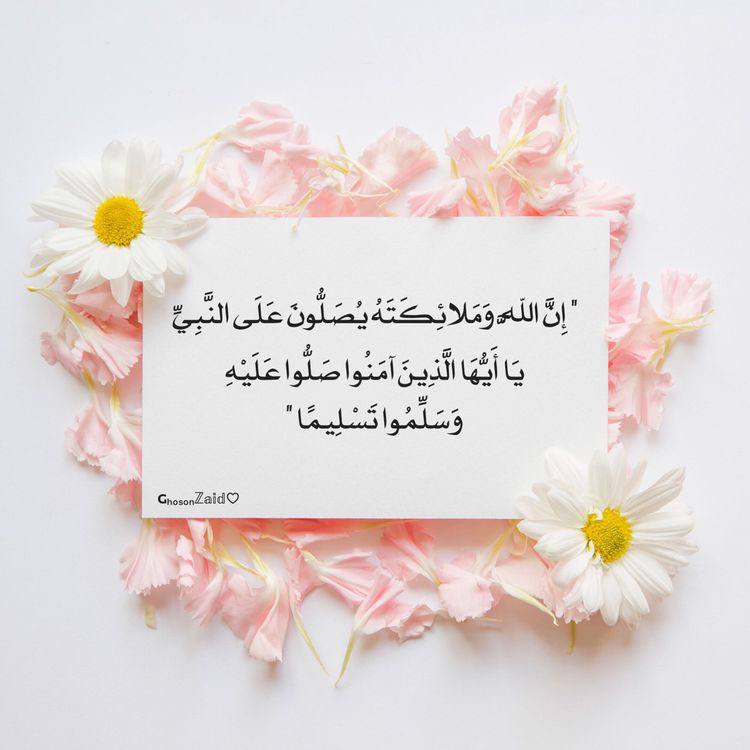 " إِنَّ اللّهَ وَمَلائِكَتَهُ يُصَلُّونَ عَلَى النَّبِيِّ
يَا أَيُّهَا الَّذِينَ آمَنُوا صَلُّوا عَلَيْهِ
وَسَلِّمُوا تَسْلِيمًا "
GhosonZaid♡